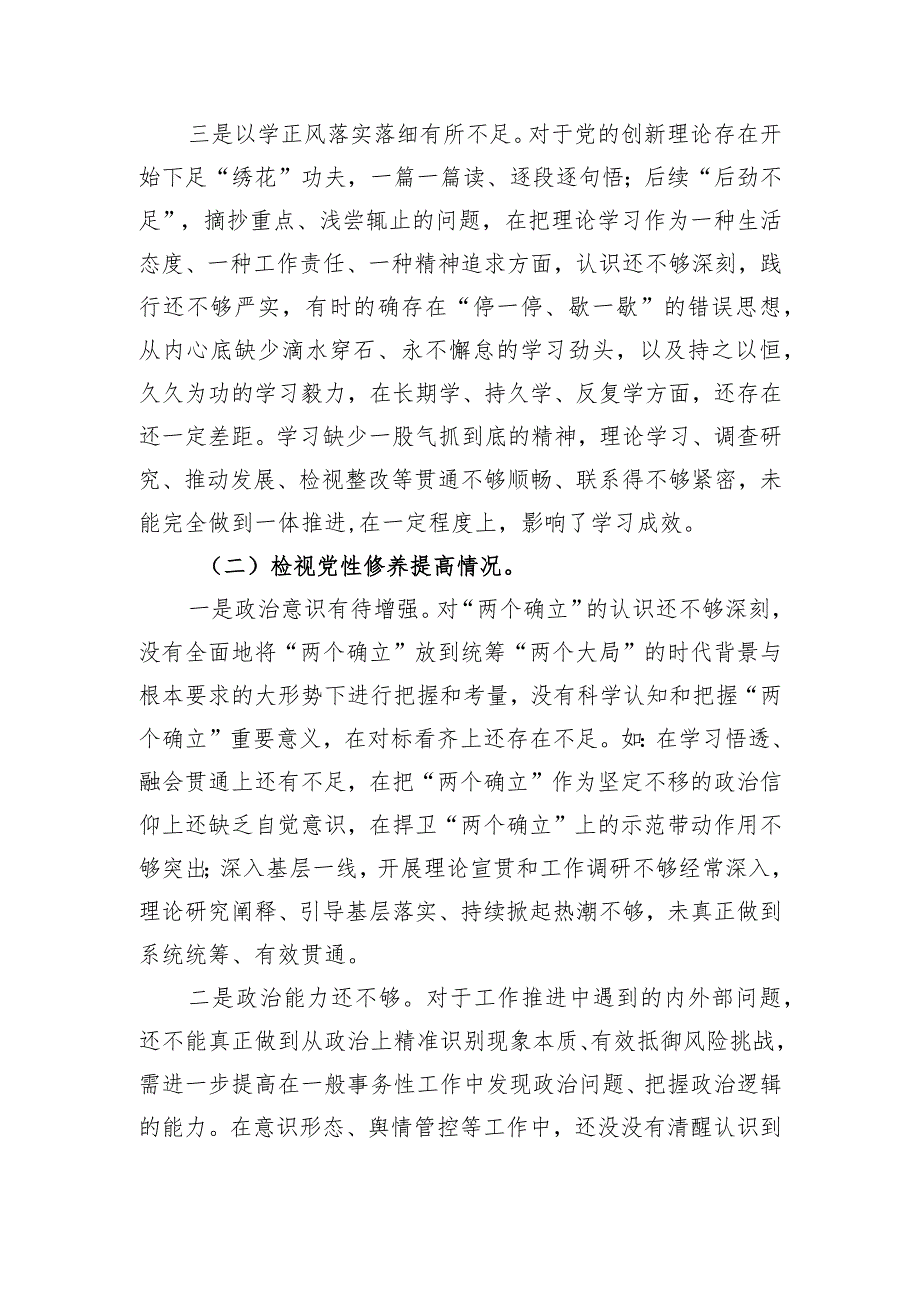 三是以学正风落实落细有所不足。对于党的创新理论存在开
始下足“绣花”功夫，一篇一篇读、逐段逐句悟；后续“后劲不
足”，摘抄重点、浅尝辄止的问题，在把理论学习作为一种生活
态度、一种工作责任、一种精神追求方面，认识还不够深刻，践
行还不够严实，有时的确存在“停一停、歇一歇”的错误思想，
从内心底缺少滴水穿石、永不懈怠的学习劲头，以及持之以恒，
久久为功的学习毅力，在长期学、持久学、反复学方面，还存在
还一定差距。学习缺少一股气抓到底的精神，理论学习、调查研
究、推动发展、检视整改等贯通不够顺畅、联系得不够紧密，未
能完全做到一体推进,在一定程度上，影响了学习成效。
（二）检视党性修养提高情况。
一是政治意识有待增强。对“两个确立”的认识还不够深刻，
没有全面地将“两个确立”放到统筹“两个大局”的时代背景与
根本要求的大形势下进行把握和考量，没有科学认知和把握“两
个确立”重要意义，在对标看齐上还存在不足。如：在学习悟透、
融会贯通上还有不足，在把“两个确立”作为坚定不移的政治信
仰上还缺乏自觉意识，在捍卫“两个确立”上的示范带动作用不
够突出；深入基层一线，开展理论宣贯和工作调研不够经常深入，
理论研究阐释、引导基层落实、持续掀起热潮不够，未真正做到
系统统筹、有效贯通。
二是政治能力还不够。对于工作推进中遇到的内外部问题，
还不能真正做到从政治上精准识别现象本质、有效抵御风险挑战，
需进一步提高在一般事务性工作中发现政治问题、把握政治逻辑
的能力。在意识形态、舆情管控等工作中，还没没有清醒认识到